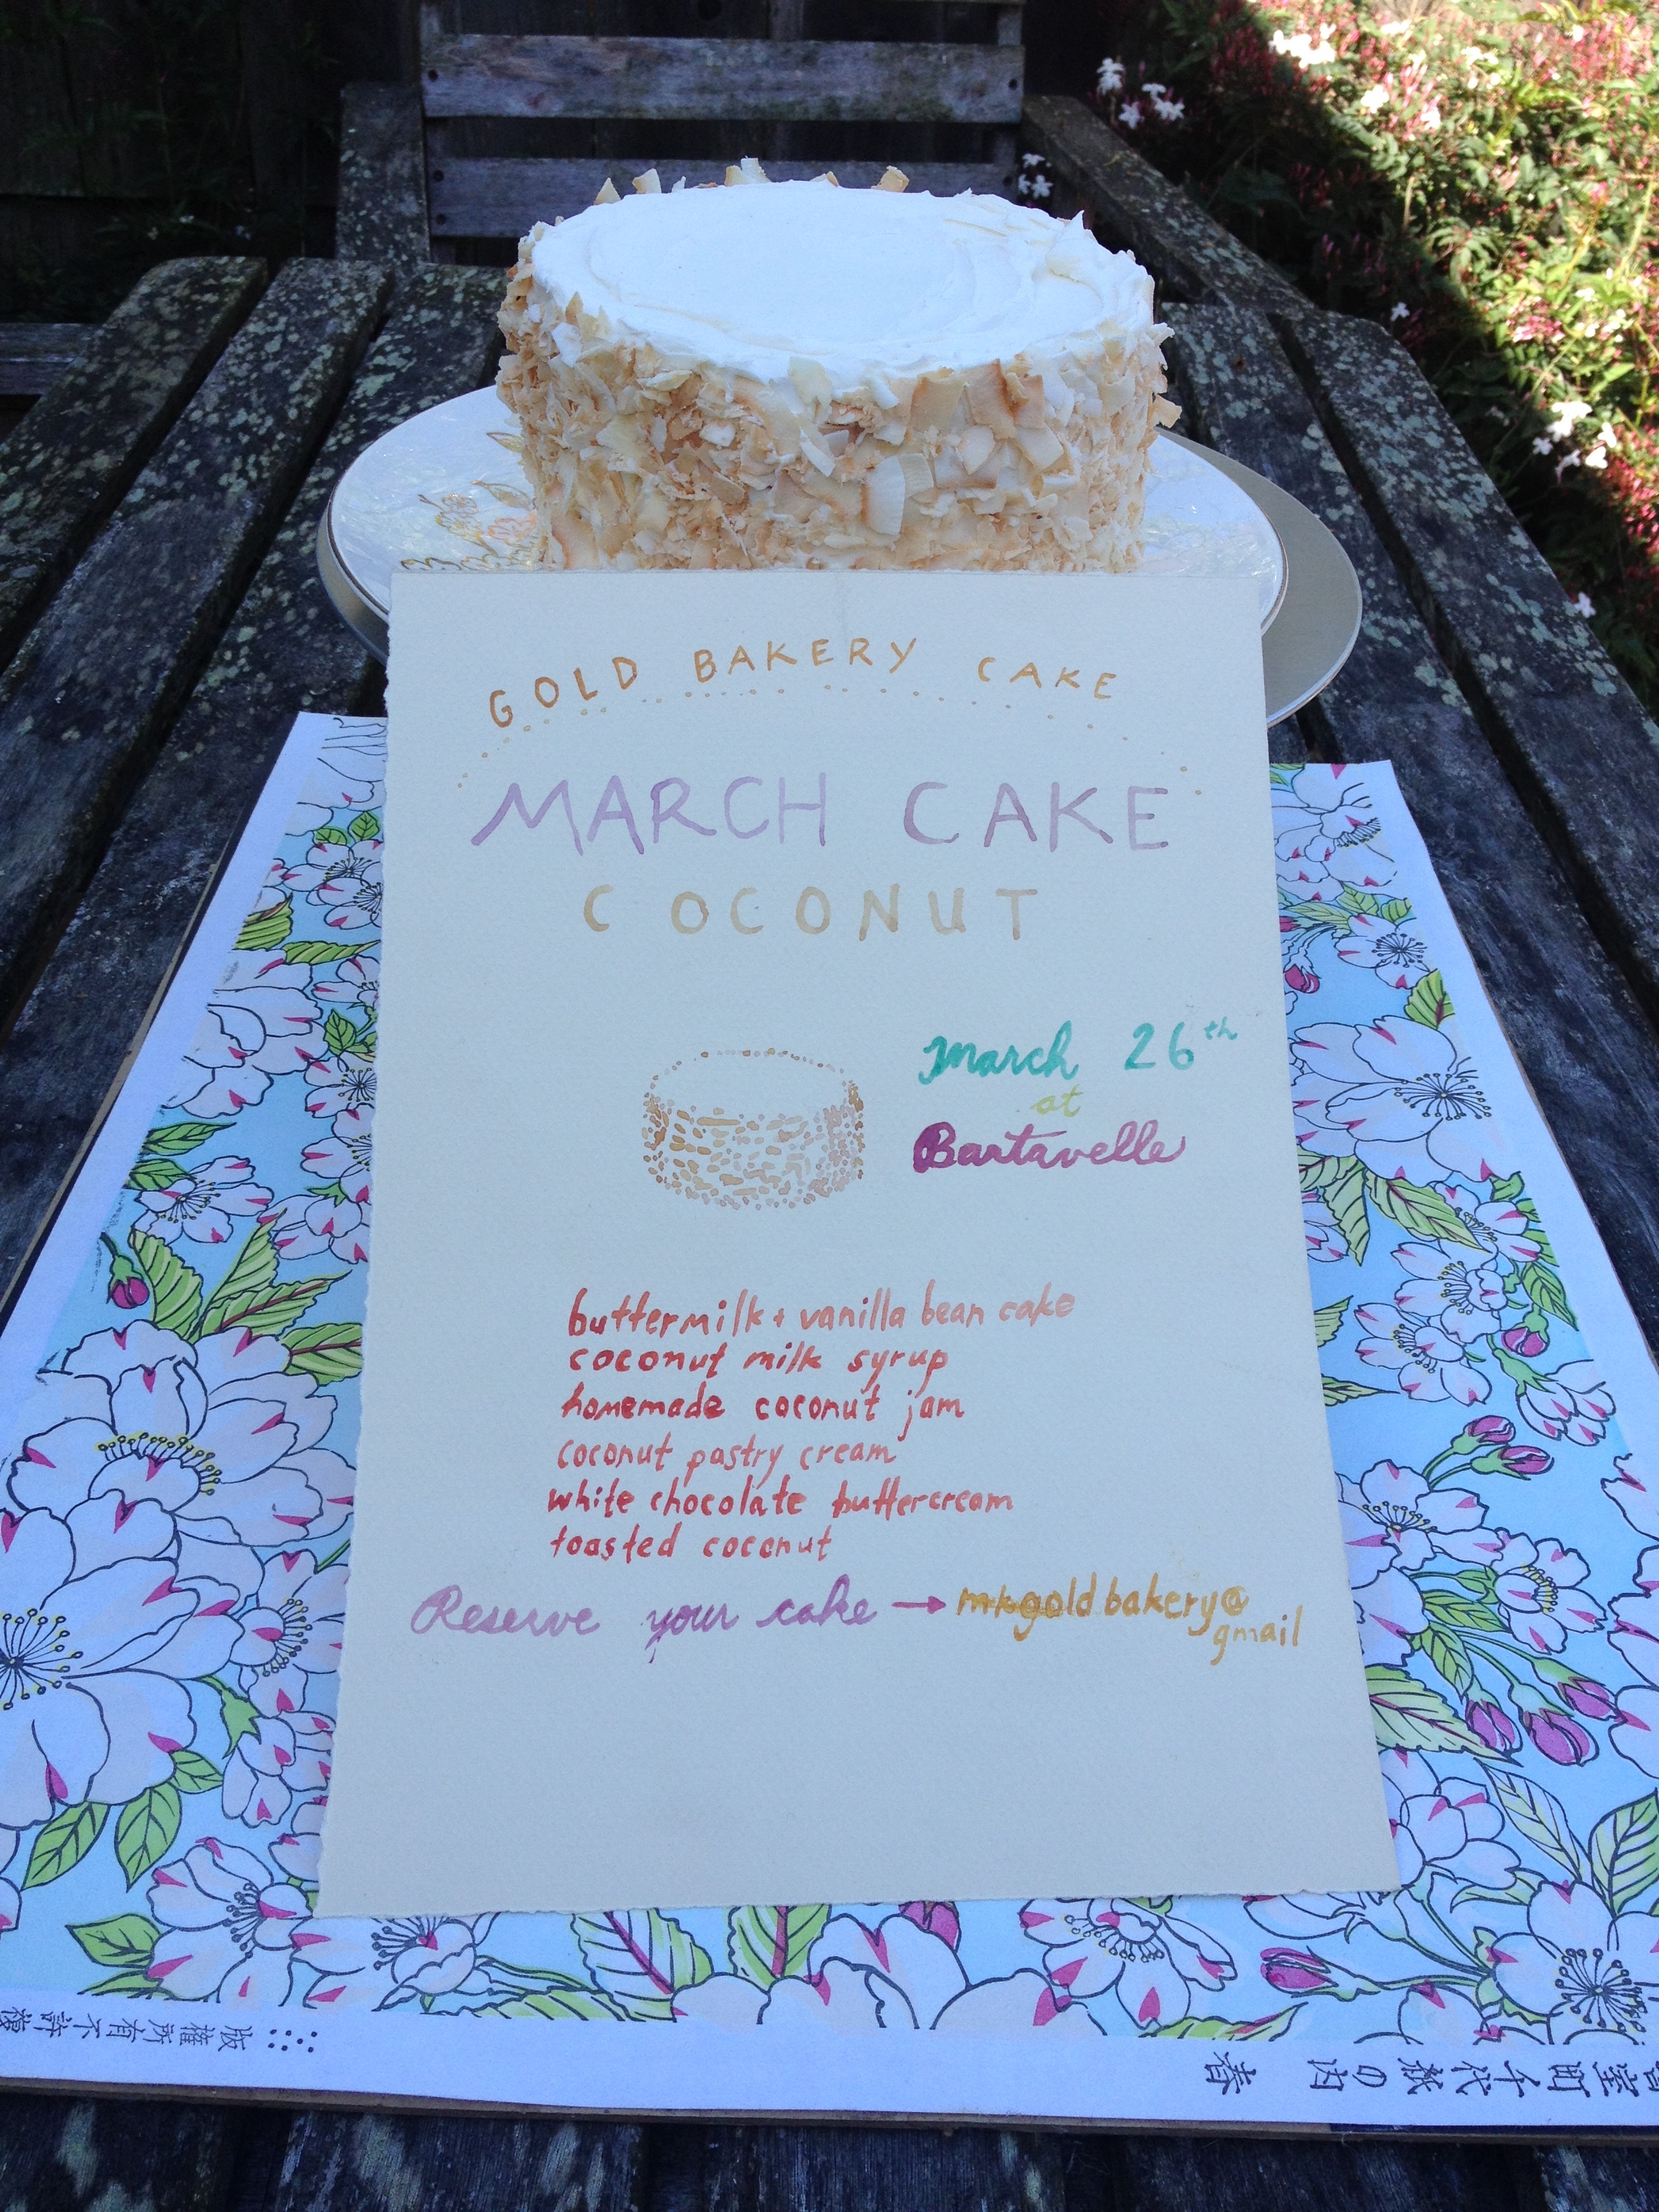 GOLD BAKERY CAKE
MARCH CAKE
COCONUT
March 26th
at
Bartavelle
buttermilk + vanilla bean cake
coconut milk syrup
homemade coconut jam
coconut pastry cream
white chocolate buttercream
toasted coconut
Reserve your cake → mkgoldbakery@
gmail
版権所有不許複
室町千代紙の内
春